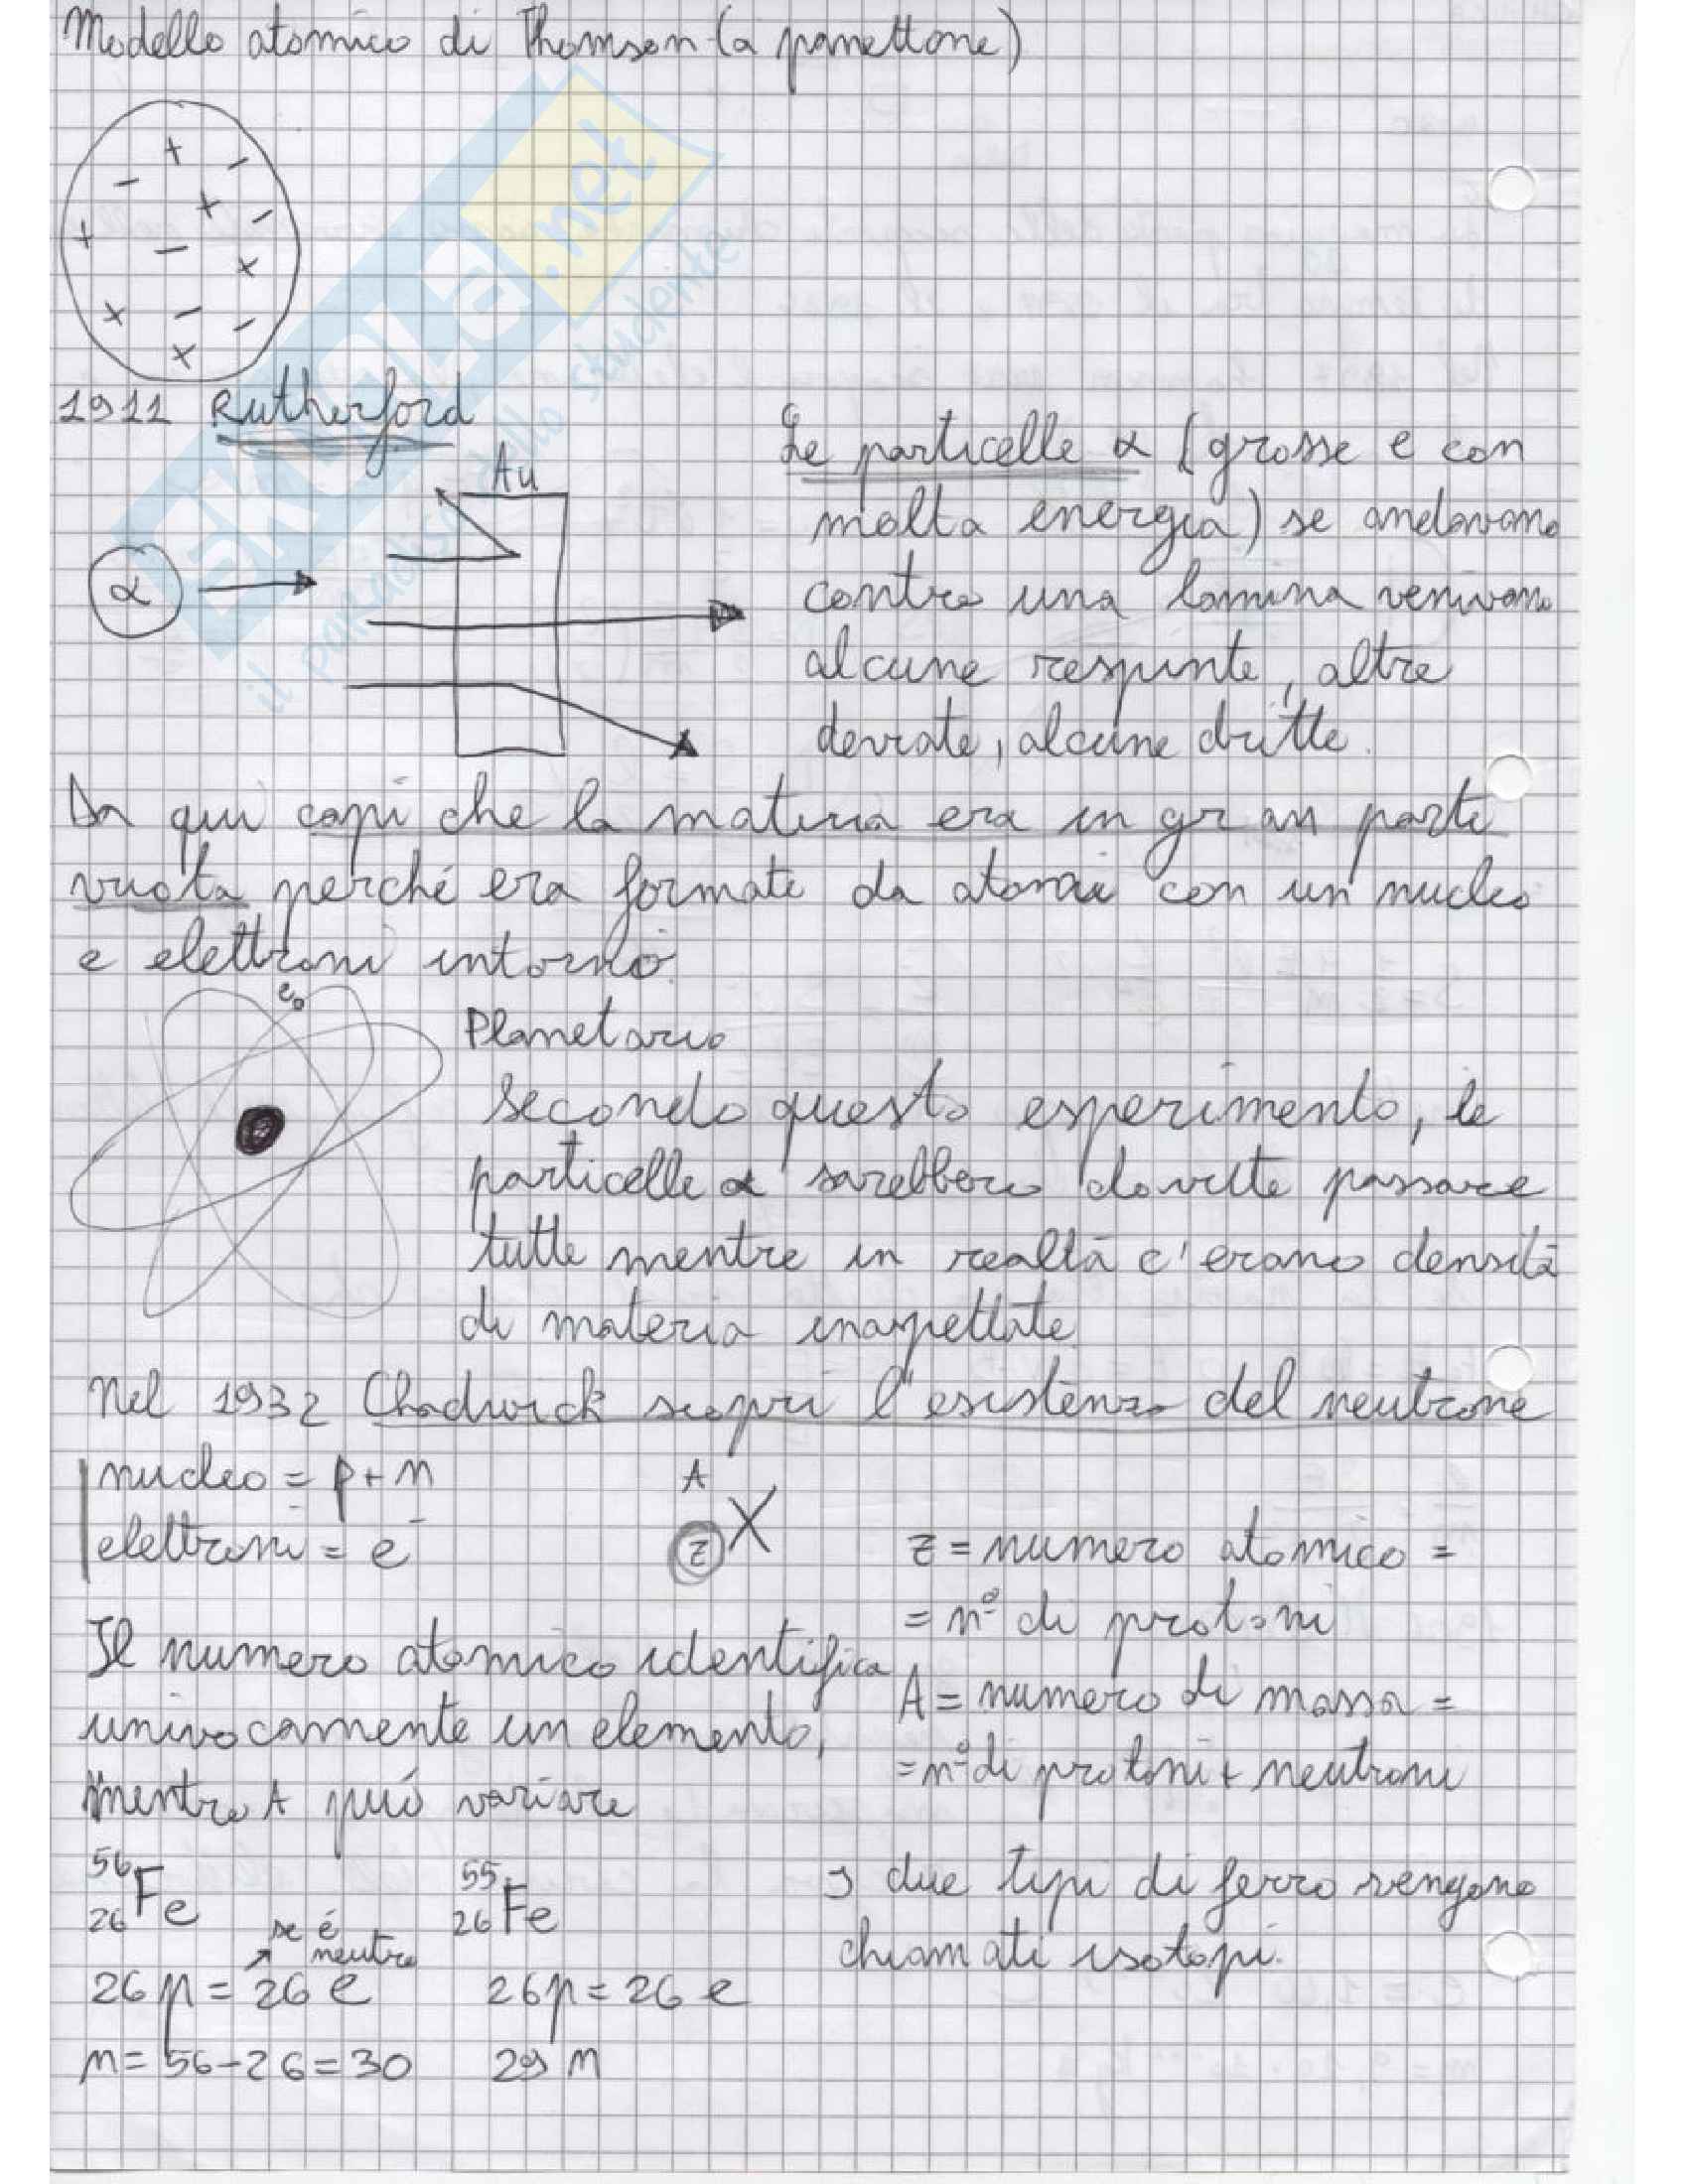 Modello atomico di Thomson (a panettone)
+ -
- +
+ - -
x
x - -
x
1911 Rutherford
Au
α
Le particelle α (grosse e con
molta energia) se andavano
contro una lamina venivano
alcune respinte, altre
deviate, alcune dritte.
Da qui capì che la materia era in gran parte
vuota perché era formate da atomi con un nucleo
e elettroni intorno.
e
Planetario
Secondo questo esperimento, le
particelle α sarebbero dovute passare
tutte mentre in realtà c'erano densità
di materia inaspettate.
Nel 1932 Chadwick scoprì l'esistenza del neutrone
nucleo = p + n
elettroni = e⁻
A
Z X
Z = numero atomico =
= n° di protoni
A = numero di massa =
= n° di protoni + neutroni
Il numero atomico identifica
univocamente un elemento,
mentre A può variare
56
26 Fe
55
26 Fe
I due tipi di ferro vengono
chiamati isotopi.
se é
neutro
26 p = 26 e
26 p = 26 e
n = 56 - 26 = 30
29 n
SKUOLA.net
il paradiso dello studente